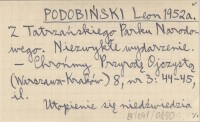 PODOBIŃSKI Leon 1952a.
Z Tatrzańskiego Parku Narodo-
wego. Niezwykłe wydarzenie.
– Chrońmy Przyrodę Ojczystą
(Warszawa-Kraków) 8, nr 3: 44-45,
il.
Utopienie się niedźwiedzia